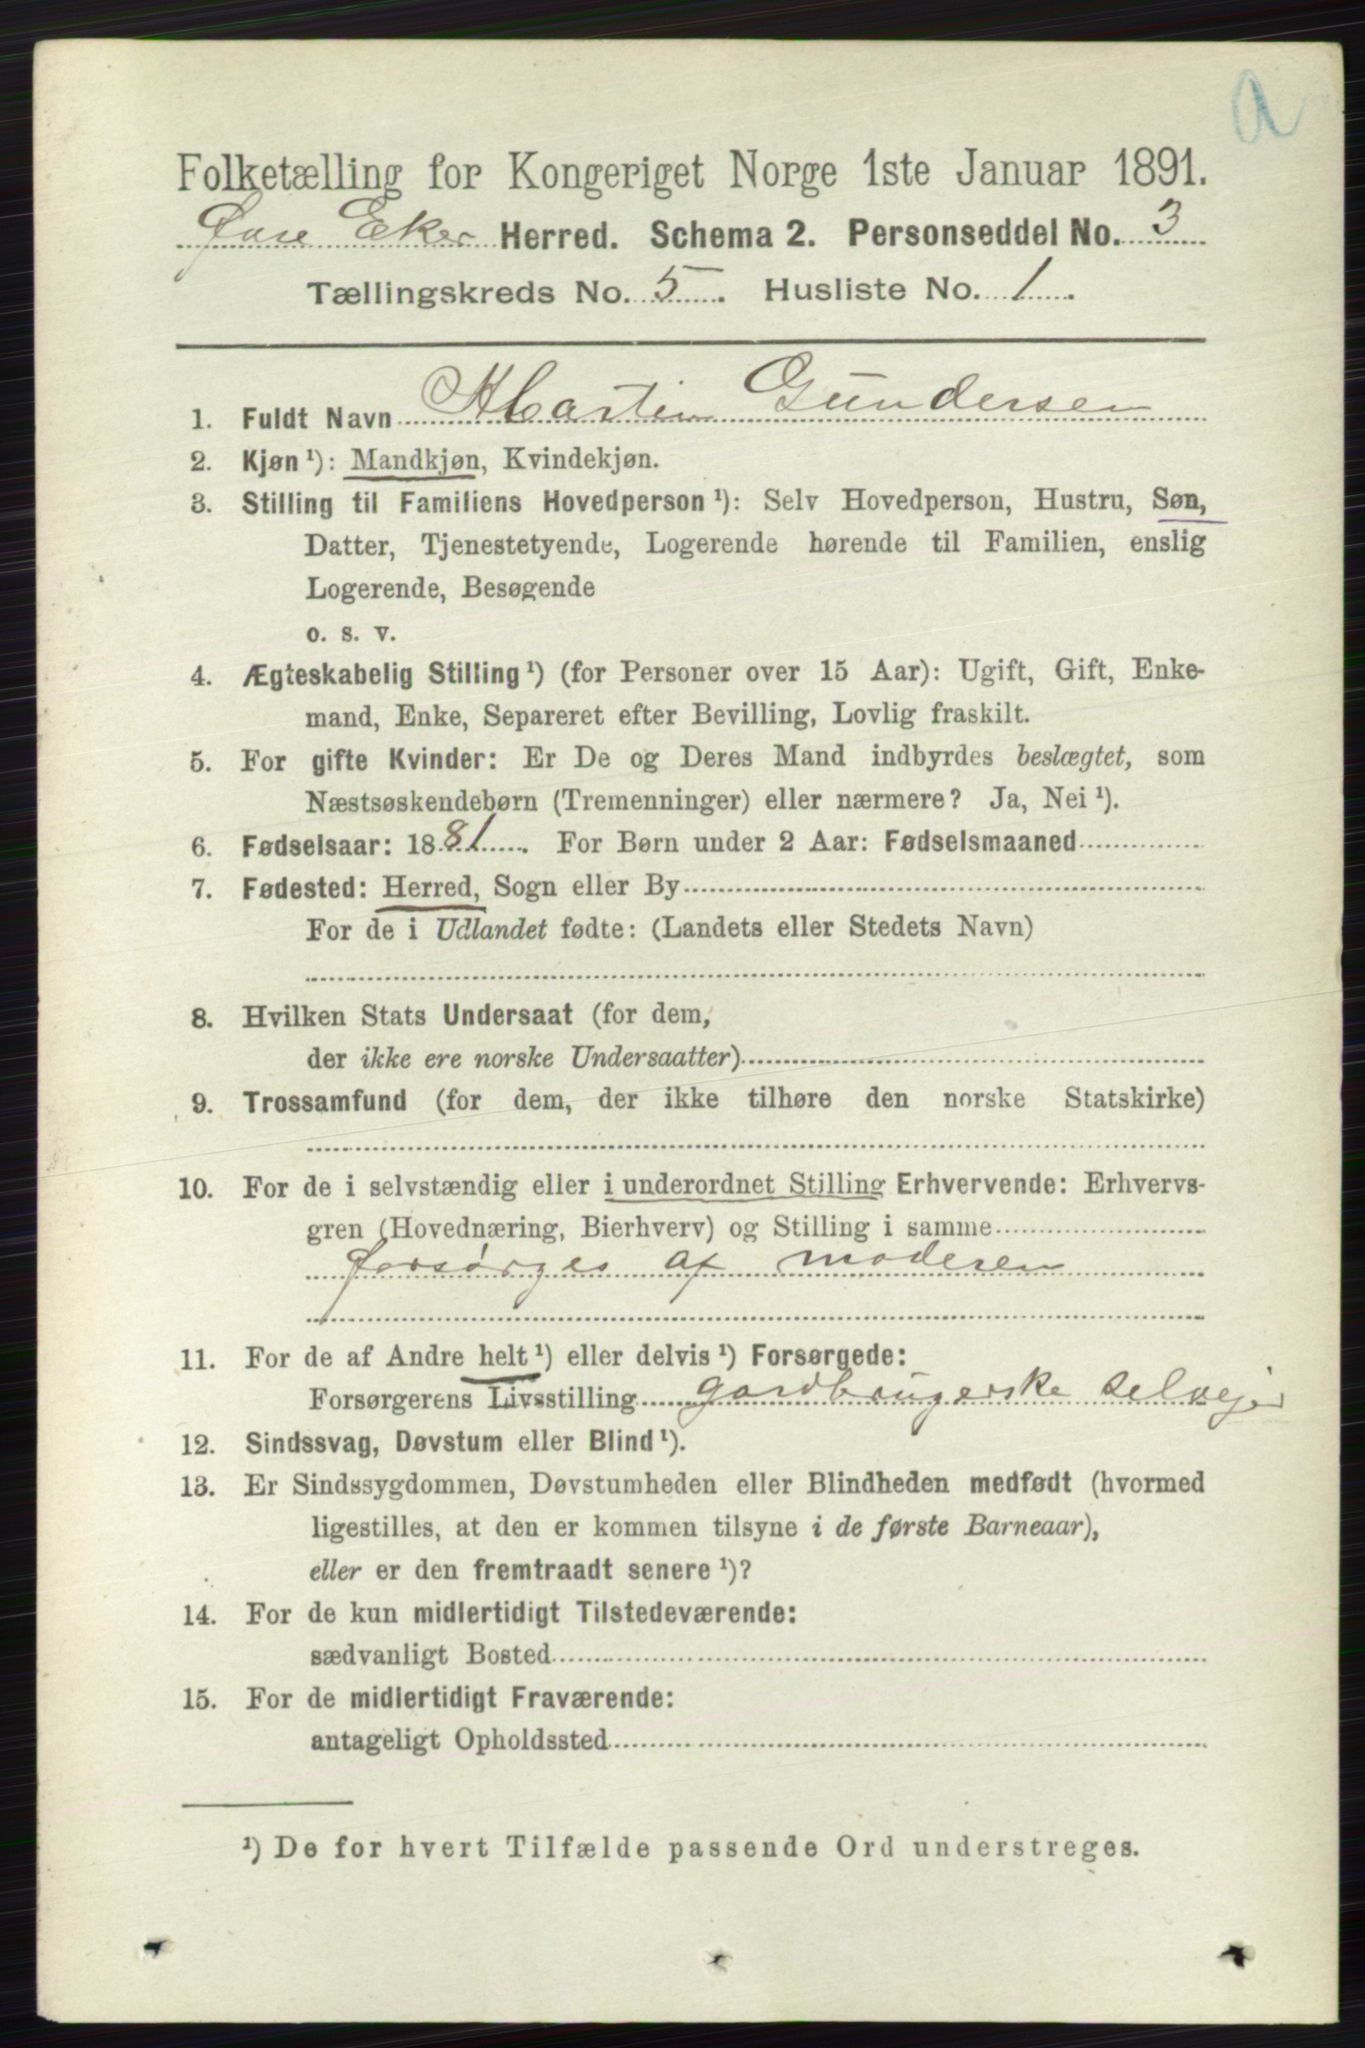 a
Folketælling for Kongeriget Norge 1ste Januar 1891.
Øvre Eker Herred. Schema 2. Personseddel No. 3
Tællingskreds No. 5. Husliste No. 1.
1. Fuldt Navn Martin Gundersen
2. Kjøn ¹): Mandkjøn, Kvindekjøn.
3. Stilling til Familiens Hovedperson ¹): Selv Hovedperson, Hustru, Søn,
Datter, Tjenestetyende, Logerende hørende til Familien, enslig
Logerende, Besøgende
o. s. v.
4. Ægteskabelig Stilling ¹) (for Personer over 15 Aar): Ugift, Gift, Enke-
mand, Enke, Separeret efter Bevilling, Lovlig fraskilt.
5. For gifte Kvinder: Er De og Deres Mand indbyrdes beslægtet, som
Næstsøskendebørn (Tremenninger) eller nærmere? Ja, Nei ¹).
6. Fødselsaar: 1881. For Børn under 2 Aar: Fødselsmaaned
7. Fødested: Herred, Sogn eller By
For de i Udlandet fødte: (Landets eller Stedets Navn)
8. Hvilken Stats Undersaat (for dem,
der ikke ere norske Undersaatter)
9. Trossamfund (for dem, der ikke tilhøre den norske Statskirke)
10. For de i selvstændig eller i underordnet Stilling Erhvervende: Erhvervs-
gren (Hovednæring, Bierhverv) og Stilling i samme
forsørges af moderen
11. For de af Andre helt ¹) eller delvis ¹) Forsørgede:
Forsørgerens Livsstilling gardbrugerske selvejer
12. Sindssvag, Døvstum eller Blind ¹).
13. Er Sindssygdommen, Døvstumheden eller Blindheden medfødt (hvormed
ligestilles, at den er kommen tilsyne i de første Barneaar),
eller er den fremtraadt senere ¹)?
14. For de kun midlertidigt Tilstedeværende:
sædvanligt Bosted
15. For de midlertidigt Fraværende:
antageligt Opholdssted
¹) De for hvert Tilfælde passende Ord understreges.